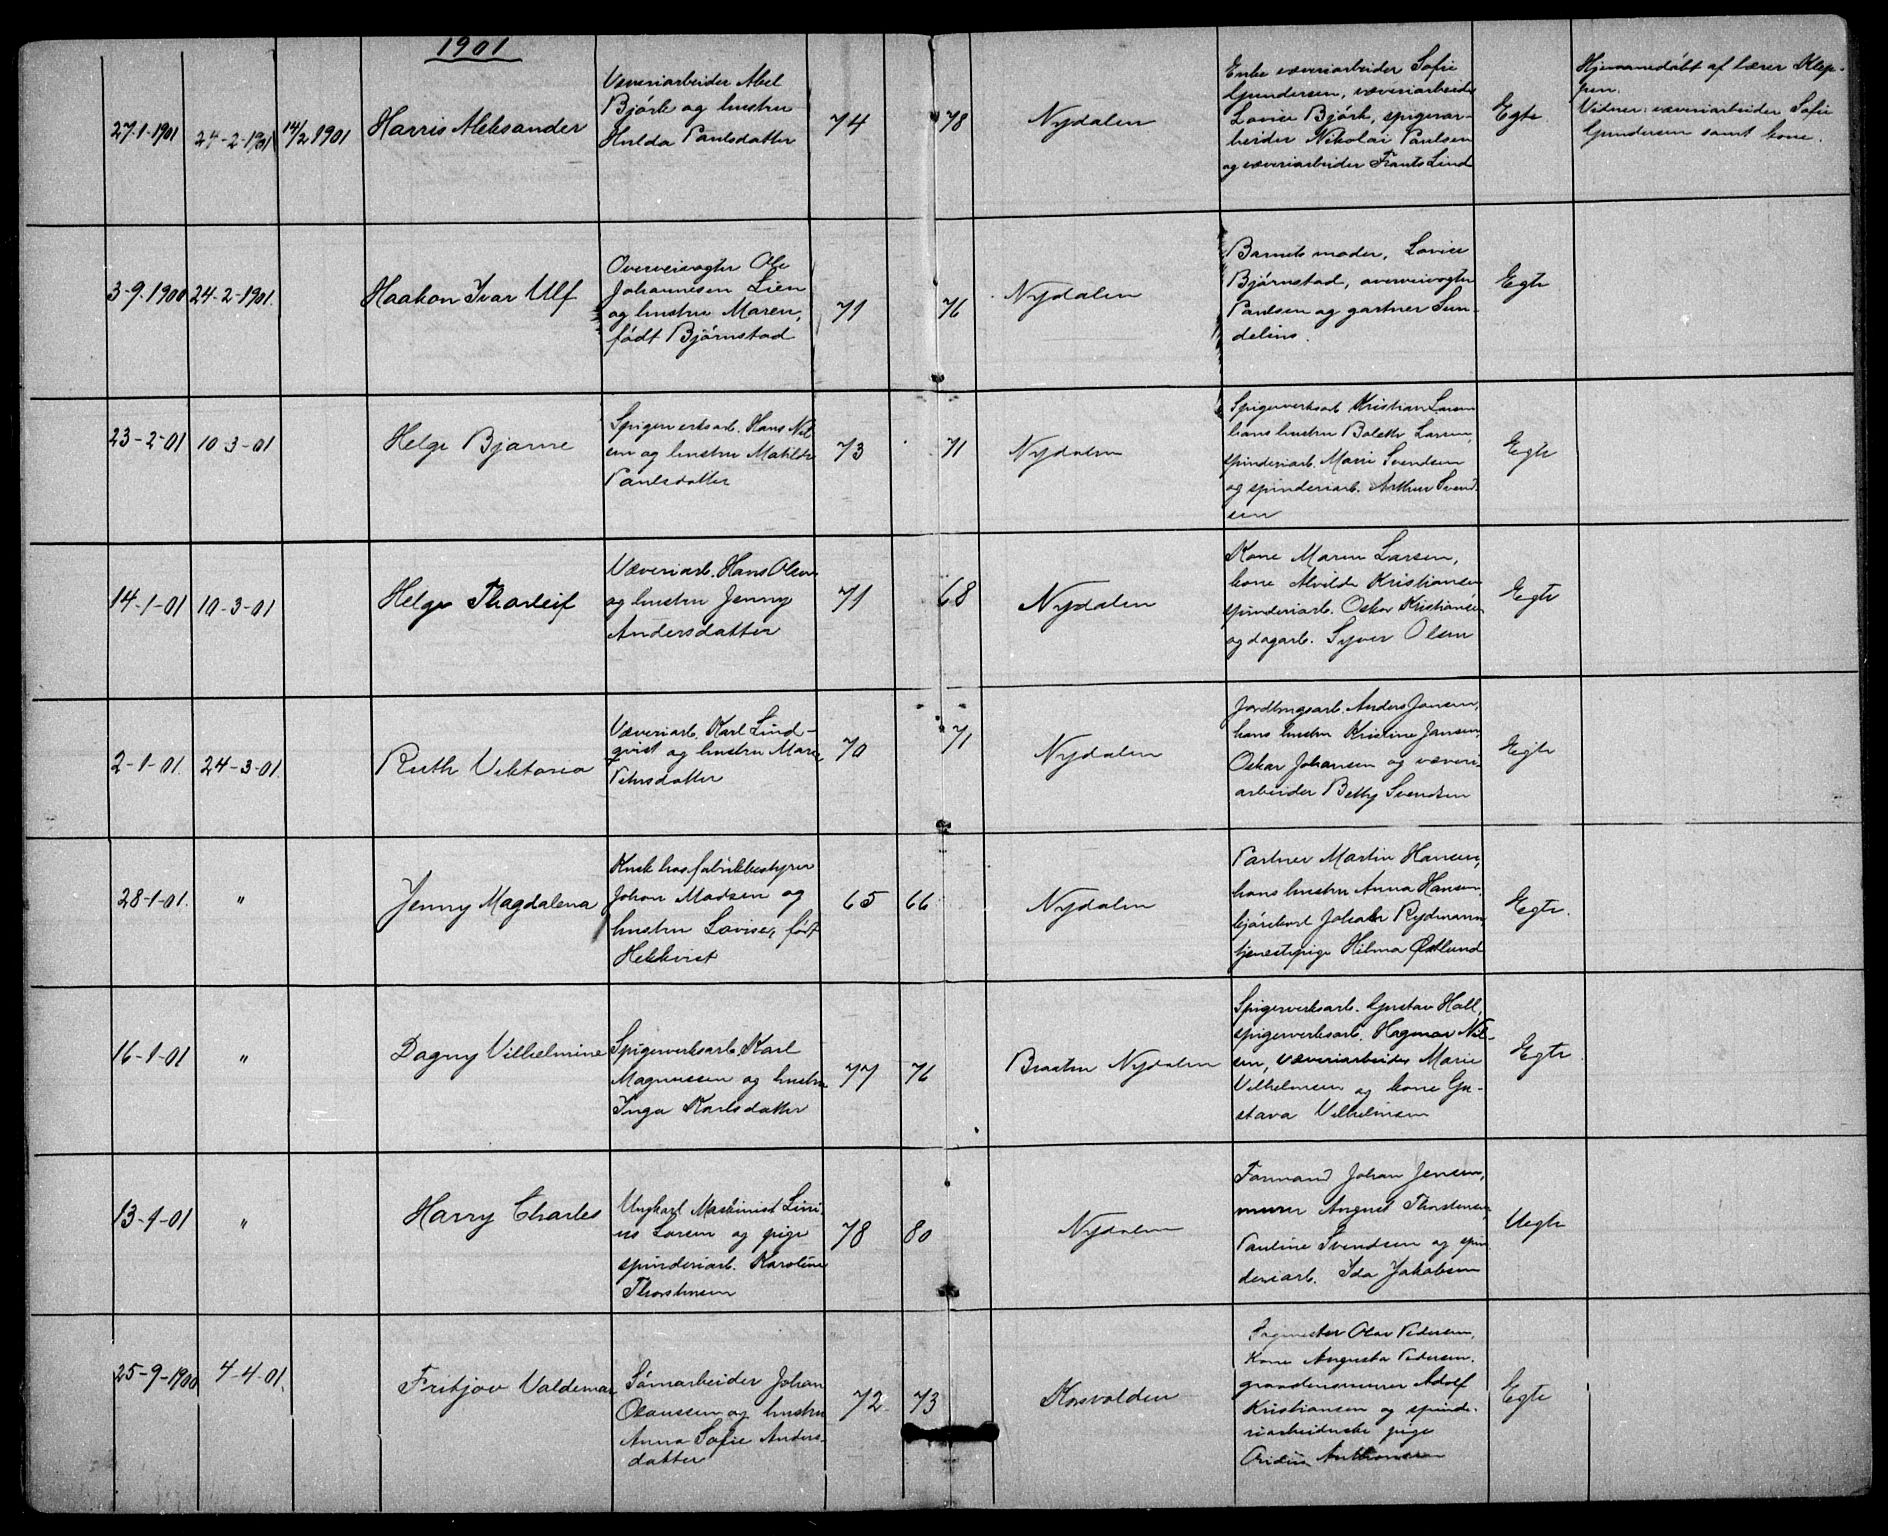 1901
27-1-1901
24-2-1901
14/2 1901
Harris Aleksander
Væveriarbeider Abel
Bjørk og hustru
Hulda Paulsdatter
74
78
Nydalen
Enke væveriarbeider Sofie
Gundersen, væveriarbeid
Lovise Bjørk, spigerar-
beider Nikolai Paulsen
og væveriarbeider Frants Lind
Egte
Hjemmedøbt af lærer Klep-
pen.
Vidner: væveriarbeider Sofie
Gundersen samt kone.
3-9-1900
24-2-1901.
Haakon Ivar Ulf
Overveivogter Ole
Johannesen Lien
og hustru Maren,
født Bjørnstad
71
76
Nydalen
Barnets moder, Lovise
Bjørnstad, overveivogter
Paulsen og gartner Sun-
delins.
Egte
23-2-01
10-3-01
Helge Bjarne
Spigerverksarb. Hans Nil
sen og hustru Matilde
Paulsdatter
73
71
Nydalen
Spigerverksarb Kristian Larsen
hans hustru Bolette Larsen,
spinderiarb. Marie Svendsen
og spinderiarb. Arthur Svend
sen
Egte
14-1-01
10-3-01
Helge Thorleif
Væveriarb. Hans Olsen
og hustru Jenny
Andersdatter
71
68
Nydalen
Kone Maren Larsen,
kone Alvilde Kristiansen
spinderiarb. Oskar Kristiansen
og dagarb. Syver Olsen
Egte
2-1-01.
24-3-01.
Ruth Viktoria
Væveriarb. Karl Lind-
qvist og hustru Maren
Petersdatter
70
71
Nydalen
Jordbrugsarb. Anders Jansen,
hans hustru Kristine Jansen
Oskar Johansen og væveri-
arbeider Betty Svendsen
Egte
28-1-01.
"
Jenny Magdalena
fabrikbestyrer
Johan Madsen og
hustru Lovise, født
Hellkvist
65
66
Nydalen
Partner Martin Hansen,
hans hustru Anna Hansen
kjørekarl Johan Rydmann
tjenestepige Hilma Østlund
Egte.
16-1-01
"
Dagny Vilhelmine
Spigerverksarb. Karl
Magnussen og hustru
Inga Karlsdatter
77
76
Braaten Nydalen
Spigerverksarb. Gustav Hall,
spigerverksarb. Hagmar Niel-
sen, væveriarbeider Marie
Vilhelmsen og kone Gu-
stava Vilhelmsen
Egte
13-1-01
"
Harry Charles
Ungkarl Maskinist Lini
us Larsen og pige
spinderiarb. Karoline
Thorstensen
78
80
Nydalen
Formand Johan Jensen,
murer August Thorstensen,
Pauline Svendsen og spin
deriarb. Ida Jakobsen
Uegte
25-9-1900
4-4-01.
Fritjov Valdemar
Sømarbeider Johan
Olaussen og hustru
Anna Sofie Anders-
datter
72
73
Korsvolden
Sagmester Olav Pedersen,
Kone Augusta Pedersen,
graastensmurer Adolf
Kristiansen og spinde-
riarbeiderske pige
Egte